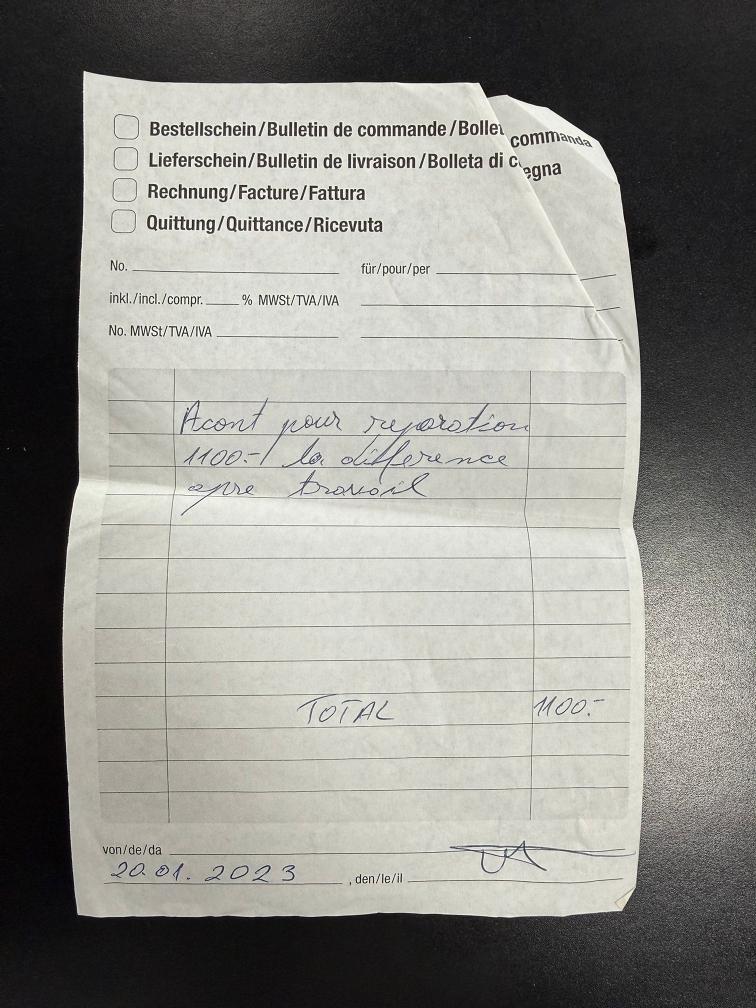 Bestellschein/Bulletin de commande/Bolle commanda
Lieferschein/Bulletin de livraison/Bolleta di c egna
Rechnung/Facture/Fattura
Quittung/Quittance/Ricevuta
No. für/pour/per
inkl./incl./compr. % MWSt/TVA/IVA
No. MWSt/TVA/IVA
Acont pour reparation
1100.-/ la difference
apre travail
TOTAL 1100.-
von/de/da
20.01.2023 , den/le/il